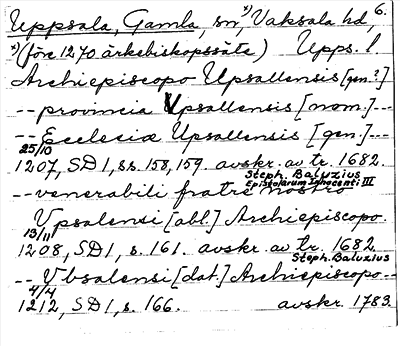 Uppsala, Gamla, sn, x) Vaksala hd, 6.
x) (före 1270 ärkebiskopssäte) Upps. l
Archiepiscopo Upsallensis [gen.?]
-- provincia Vpsallensis [nom.] --
-- Ecclesiæ Upsallensis [gen.] --
25/10
1207, SD 1, ss. 158, 159. avskr. av tr. 1682.
Steph. Baluzius
Epistolarum Innocenti III
-- venerabili fratre nostro
Vpsalensi [abl.] Archiepiscopo.
13/11
1208, SD 1, s. 161. avskr. av tr. 1682.
Steph. Baluzius
-- Vbsalensi [dat.] Archiepiscopo --
4/4
1212, SD 1, s. 166. avskr. 1783.